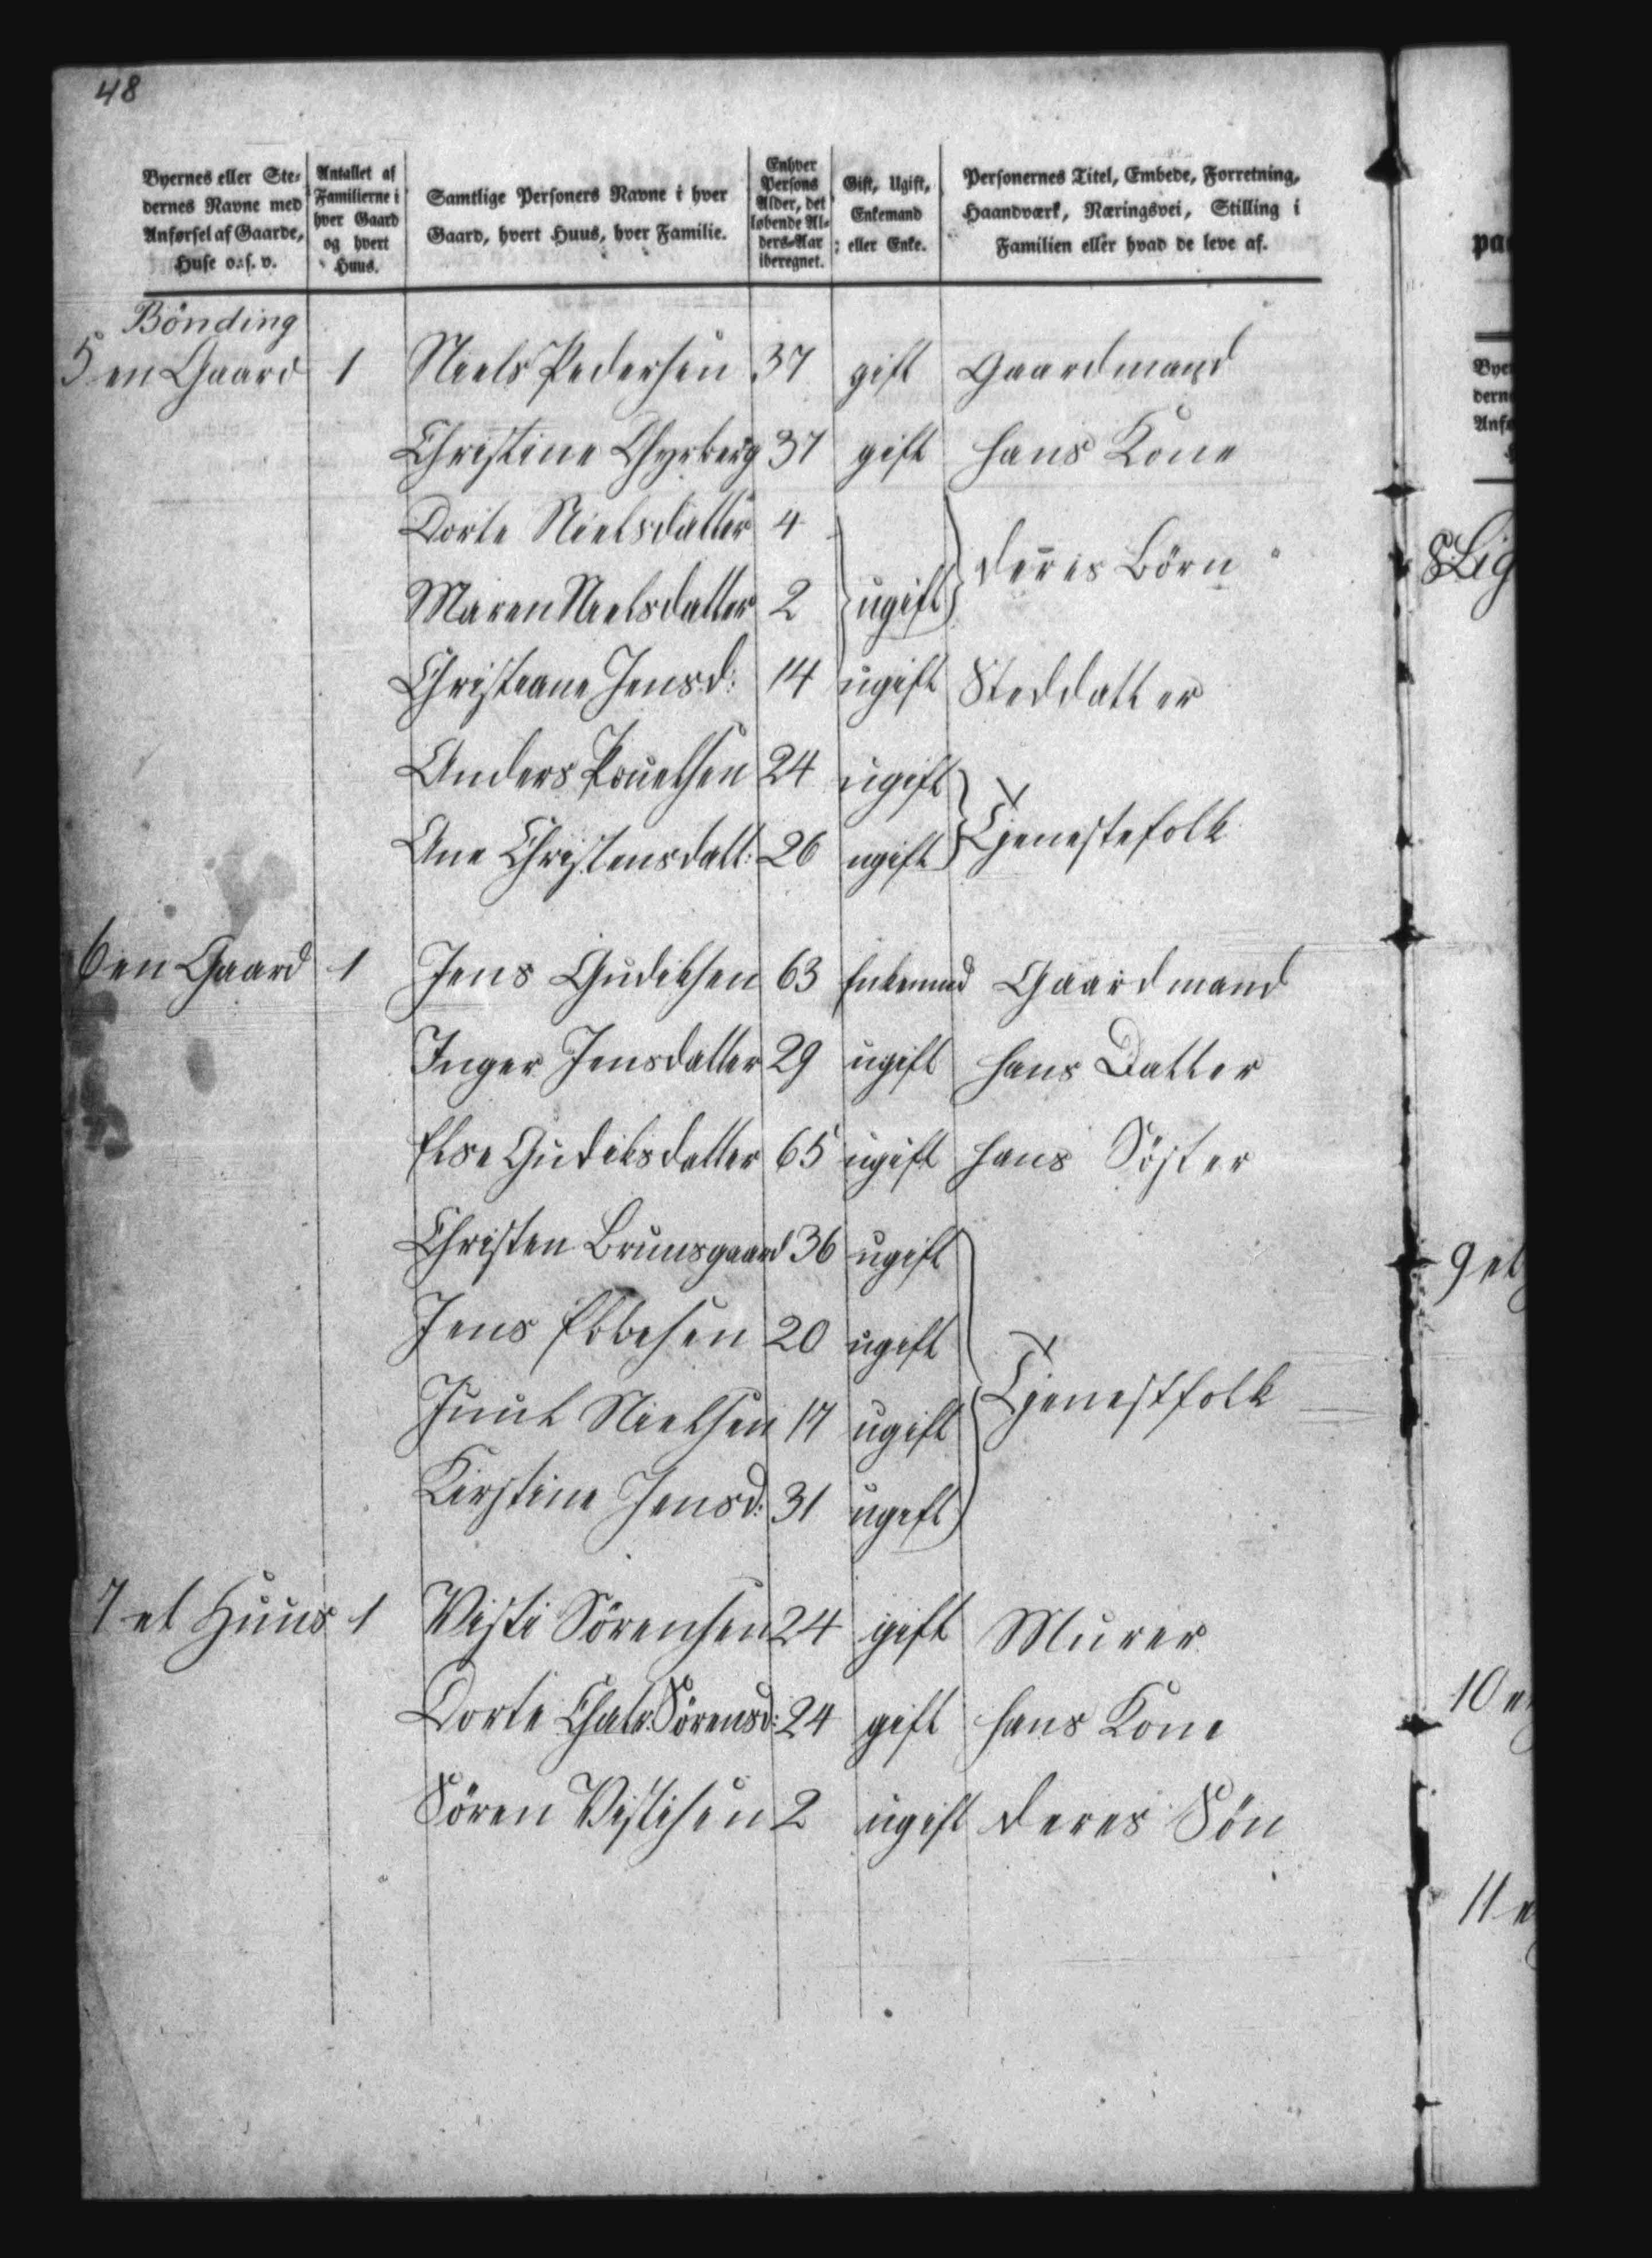 48
Byernes eller Ste-
dernes Navne med
Anførsel af Gaarde,
Huse o. s. v.
Antallet af
Familierne i
hver Gaard
og hvert
Huus.
Samtlige Personers Navne i hver
Gaard, hvert Huus, hver Familie.
Enhver
Persons
Alder, det
løbende Al-
ders-Aar
iberegnet.
Gift, Ugift,
Enkemand
eller Enke.
Personernes Titel, Embede, Forretning,
Haandværk, Næringsvei, Stilling i
Familien eller hvad de leve af.
Bönding
5 en Gaard 1 Niels Pedersen 37 gift Gaardmand
Christine 37 gift hans Kone
Dorte Nielsdatter 4
deres Börn
Maren Nielsdatter 2 ugift
Christeane Jensd: 14 ugift Steddatter
Anders Pouelsen 24 ugift
Tjenestefolk
Ane Christensdatt: 26 ugift
6 en Gaard 1 Jens Gudiksen 63 Enkemand Gaardmand
Inger Jensdatter 29 ugift hans Datter
Else Gudiksdatter 65 ugift hans Söster
Christen Brunsgaard 36 ugift
Jens Ebbesen 20 ugift
Tjenestfolk
Juul Nielsen 17 ugift
Kirstine Jensd: 31 ugift
7 et Huus 1 Visti Sörensen 24 gift Murer
Dorte Cathr. Sörensd: 24 gift hans Kone
Sören Vistisen 2 ugift deres Sön
pa
Bye
dern
Anfø
8 Lig
9 et
10 e
11 e